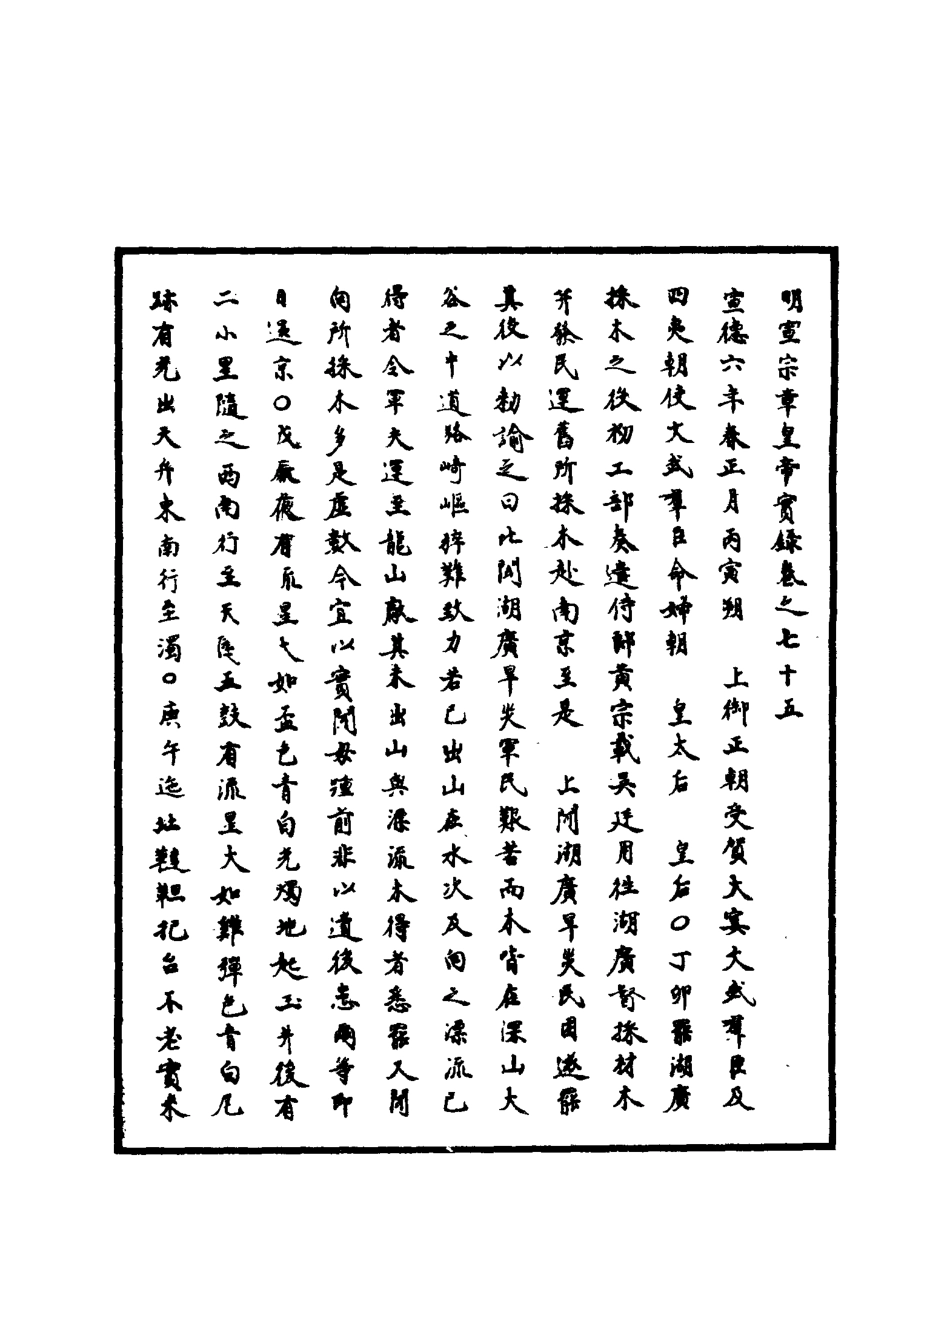 明宣宗章皇帝實錄卷之七十五
宣德六年春正月丙寅朔　上御正朝受賀大宴文武群臣及
四夷朝使文武群臣命婦朝　皇太后　皇后○丁卯罷湖廣
採木之役初工部奏遣侍郎黃宗載吳廷用往湖廣督採材木
并發民運舊所採木赴南京至是　上聞湖廣旱災民困遂罷
其役以勑諭之曰比聞湖廣旱災軍民艱苦而木皆在深山大
谷之中道路崎嶇猝難致力若已出山在水次及向之漂流已
得者令軍夫運至龍山厰其未出山與漂流未得者悉罷又聞
向所採木多是虛數今宜以實聞毋踵前非以遺後患爾等即
日還京○戊辰夜有流星大如盃色青白光燭地起玉井後有
二小星隨之西南行至天庾五鼓有流星大如雞彈色青白尾
跡有光出天弁東南行至濁○庚午迤北韃靼把台不老實來